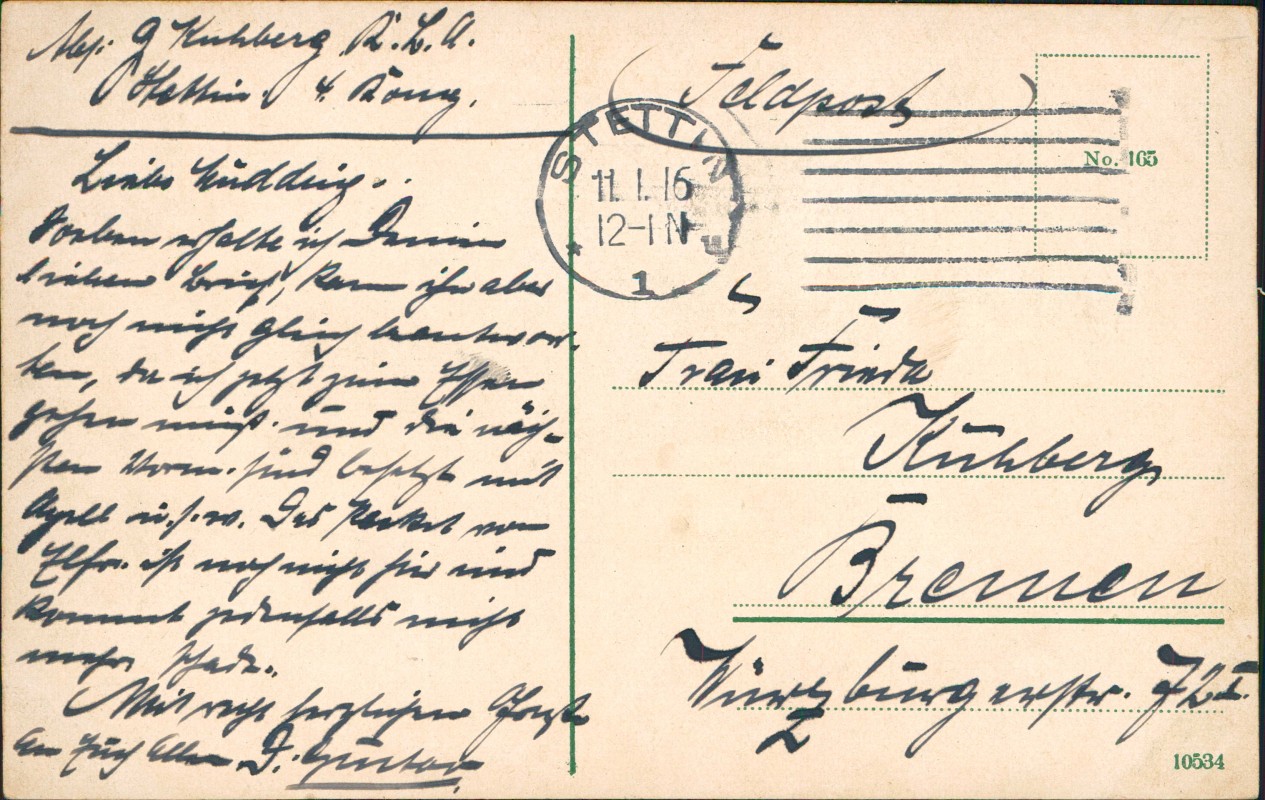 Abs: G Kuhberg K. L. A.
Stettin. 4. Komg.
Liebe Mudding..
Soeben erhalte ich Deinen
lieben Brief, kann ihn aber
noch nicht gleich beantwor-
ten, da ich jetzt zum Essen
gehen muß. und die näch-
sten Stunden sind besetzt mit
Apell u.s.w. Das Packet von
Elfr. ist noch nicht hier und
kommt jedenfalls nicht
mehr. Schade..
Mit recht herzlichen Grüßen
an Euch Allen D. Gustav.
Feldpost
STETTIN
11. 1. 16
12-1 N
* 1
No. 165
Frau Frieda
Kuhberg
Bremen
Würzburgerstr. 72 I.
10534